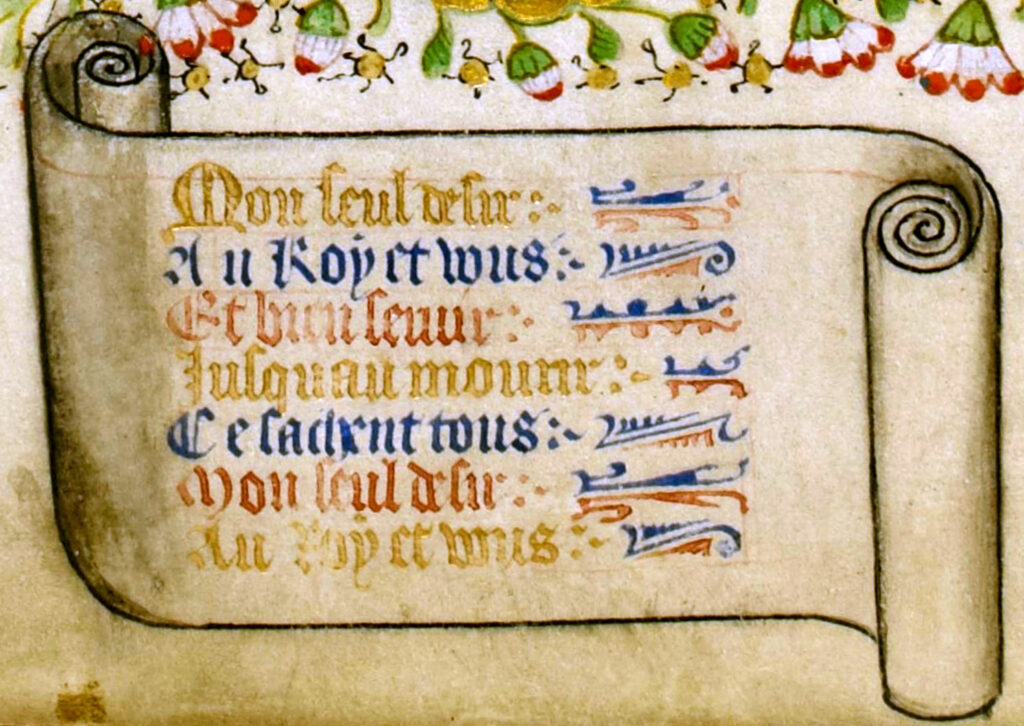 Mon seul desir :·
Au Roy et vous :·
Et bien seruir :·
Jusqu au mourir :·
Ce sachent tous :·
Mon seul desir :·
Au Roy et vous :·